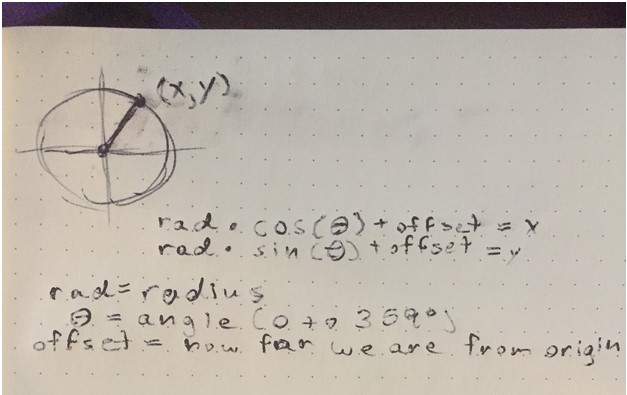 (x,y)
rad • cos(θ) + offset = x
rad • sin(θ) + offset = y
rad = radius
θ = angle (0 to 359°)
offset = how far we are from origin